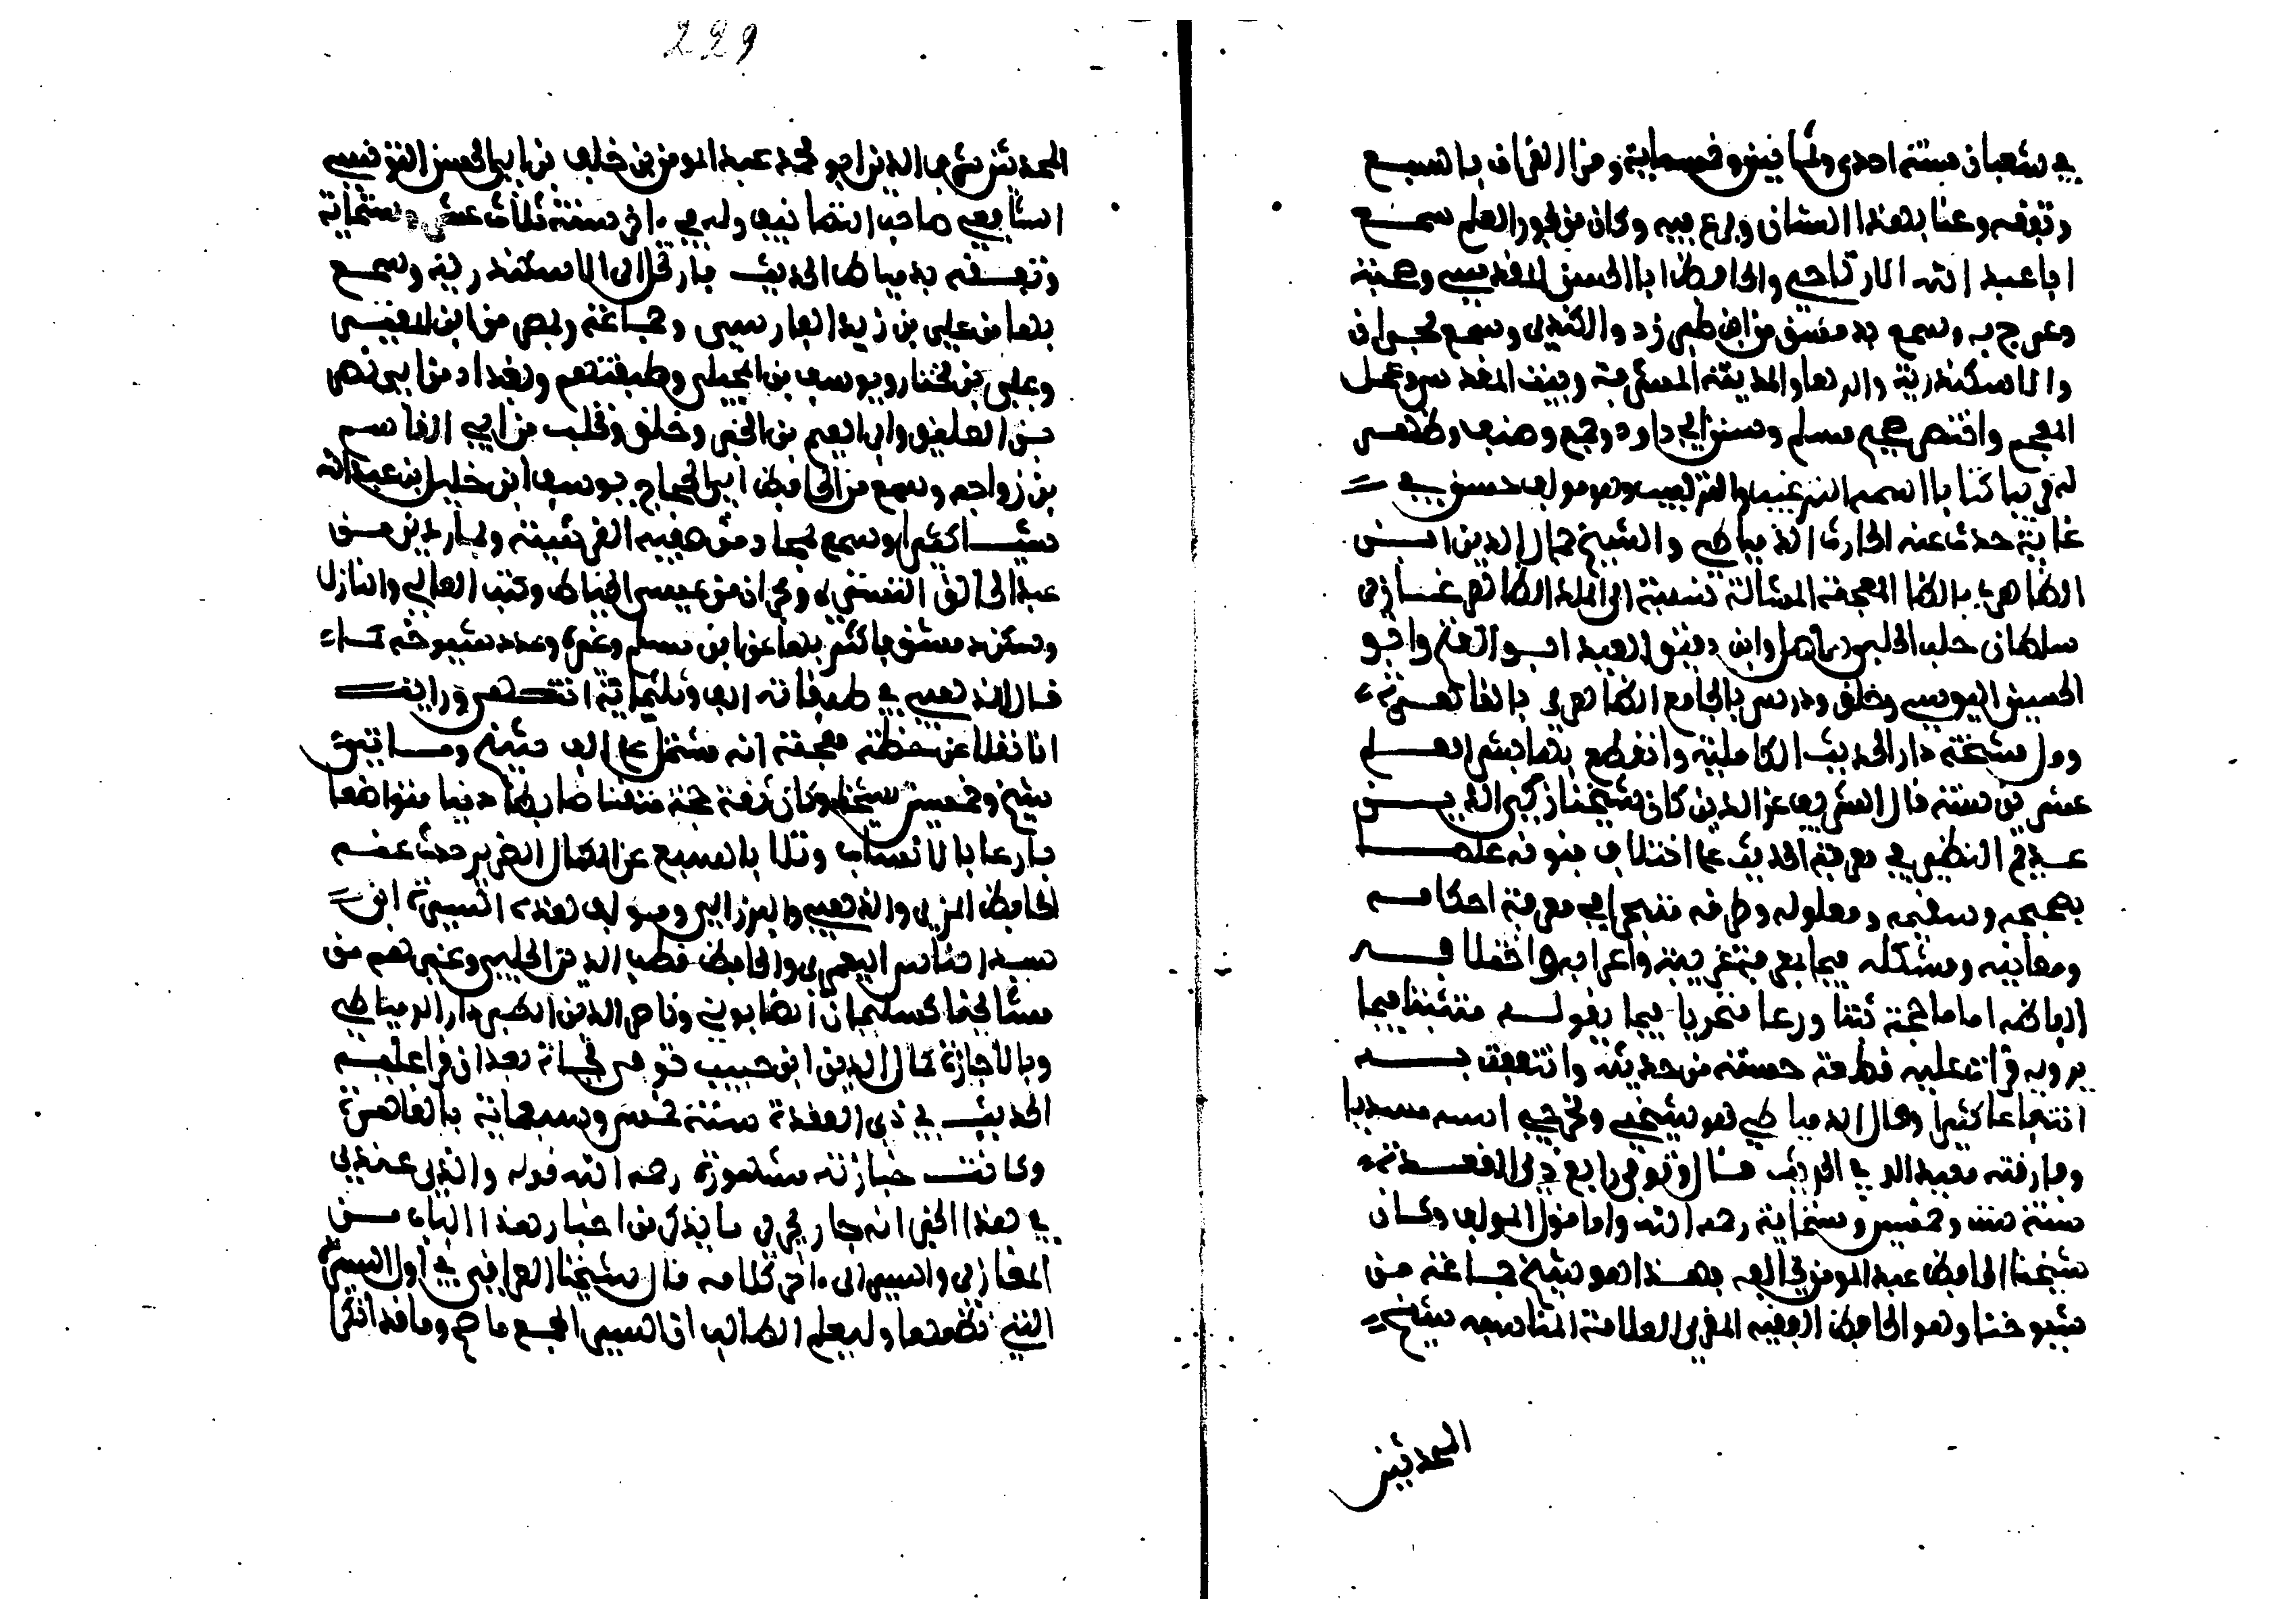 في شعبان سنة احدى وثمانين وخمسماية وقرا القران بالسبع
وتفقه وعنا بهذا الشان وبرع فيه وكان من بحور العلم سمع
ابا عبد الله الارتاحي والحافظ ابا الحسن المقدسي وصحبه
وتخرج به وسمع بدمشق من ابن طبرزد والكندي وسمع بحران
والاسكندرية والرها والمدينة المشرفة وبيت المقدس وعمل
المعجم واختصر صحيح مسلم وسنن ابي داود وجمع وصنف وظهر
له قريبا كتابا اسمه الترغيب والترهيب وهو مولف حسن في
غاية حدث عنه الحارث الدمياطي والشيخ جمال الدين ابن
الظاهري بالظا المعجمة المشالة نسبة الى الملك الظاهر غازي
سلطان حلب الحلبي وابن دقيق العيد ابو الفتح وابو
الحسين اليونيني وخلق ودرس بالجامع الظافري بالقاهرة
وولي مشيخة دار الحديث الكاملية وانقطع بها ينشر العلم
عشرين سنة قال الشريف عز الدين كان شيخنا زكي الدين
عديم النظير في معرفة الحديث على اختلاف فنونه عالما
بصحيحه وسقيمه ومعلوله وطرقه متبحرا في معرفة احكامه
ومعانيه ومشكله قيما بمعرفة غريبه واعرابه واختلاف
الفاظه اماما حجة ثبتا ورعا متحريا فيما يقوله متثبتا فيما
يرويه قرات عليه قطعة حسنة من حديثه وانتفعت به
انتفاعا كثيرا وقال الدمياطي هو شيخي ومخرجي اتيته مبتديا
وفارقته معيدا له في الحديث قال وتوفي رابع ذي القعدة
سنة ست وخمسين وستماية رحمه الله واما قول المولف وكان
شيخنا الحافظ عبد المومن الى اخره فهذا هو شيخ جماعة من
شيوخنا وهو الحافظ الفقيه المقري العلامة النسابة شيخ
المحدثين
229
المحدثين شرف الدين ابو محمد عبد المومن بن خلف بن ابي الحسن التونسي
الشافعي صاحب التصانيف ولد في اخر سنة ثلاث عشر وستماية
وتفقه بدمياط الحديث فارتحل الى الاسكندرية وسمع
بها من علي بن زيد الفارسي وجماعة وبمصر من ابن المقير
وعلي بن مختار ويوسف بن المخيلي وطبقتهم وبغداد من ابي نصر
بن العليق وابراهيم بن الخير وخلق وبحلب من ابي القاسم
بن رواحه وسمع من الحافظ ابي الحجاج يوسف ابن خليل ابن عبد الله
شيا كثيرا وسمع بحماة من صفيه القرشية وبماردين من
عبد الخالق النشتبري وبحران من عيسى الخياط وكتب العالي والنازل
وسكن دمشق فاكثر بها عن ابن مسلمة وغيره وعدد شيوخه كما
قال الذهبي في طبقاته الف وثلثماية انتهى ورايت
انا نقلا عن خطه معجمه انه مشتمل على الف شيخ وماتين
شيخ وخمسين شيخا وكان ثقة حجة متقنا صابطا دينا متواضعا
بارعا بالانساب وتلا بالسبع عن الكمال الضرير حدث عنه
الحافظ المزي والذهبي والبرزالي ومولف هذه السيرة ابن
سيد الناس اليعمري والحافظ قطب الدين الحلبي وغيرهم من
مشايخنا كسليمان الصابوني وناصر الدين الكبير دار الدمياطي
وبالاجازة كمال الدين ابن حبيب توفي فجاة بعد ان قرا عليه
الحديث في ذي القعدة سنة خمس وسبعماية بالقاهرة
وكانت جنازته مشهورة رحمه الله قوله والذي عندي
في هذا الخبر انه جار مجرى ما يذكر من اخبار هذا الباب من
المغازي والسير الى اخر كلامه قال شيخنا العراقي في اول السيرة
التي نظمها وليعلم الطالب ان السير تجمع ما صح وما قد انكرا